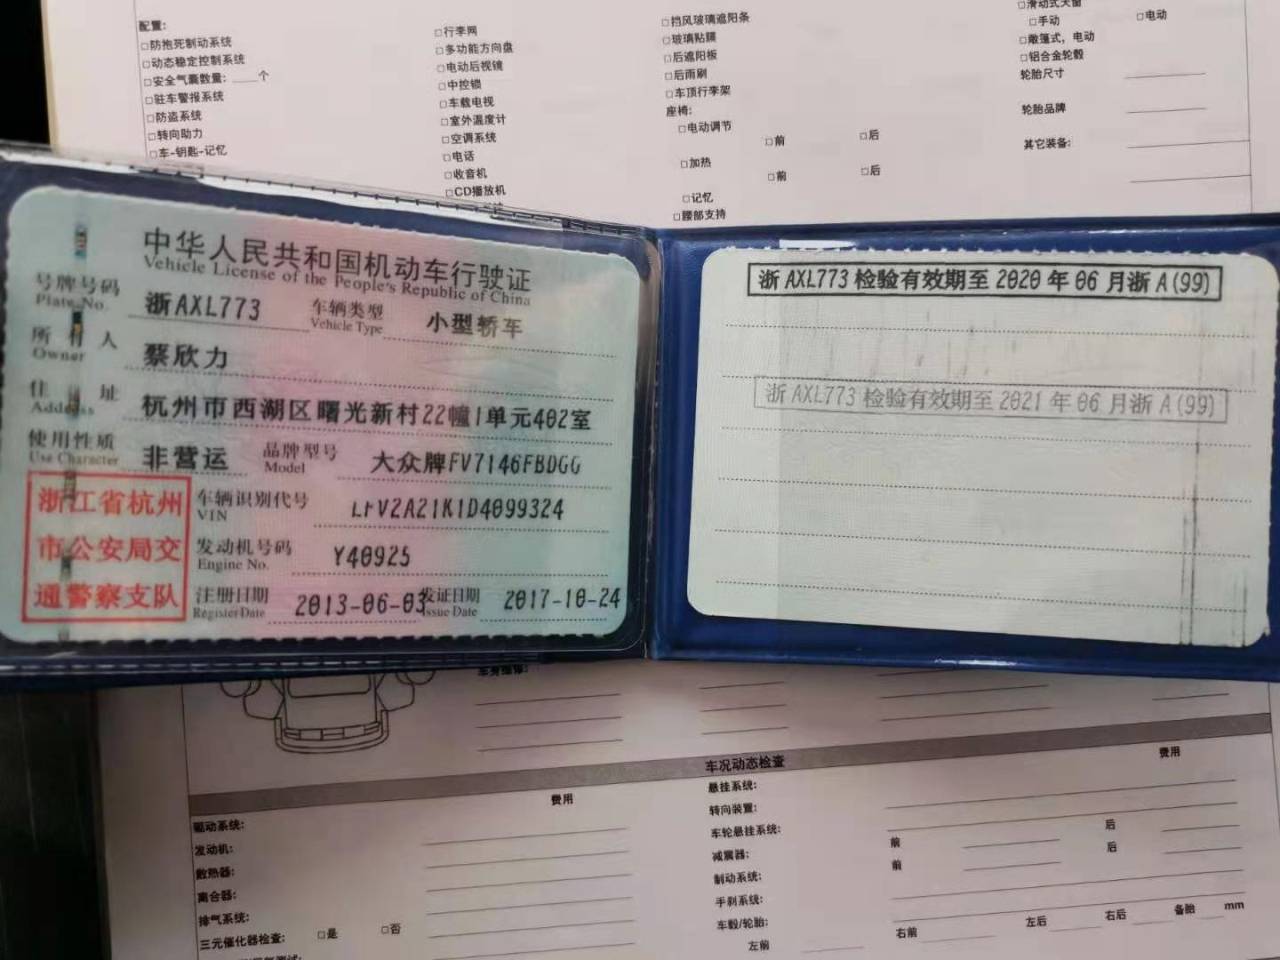 配置:
□防抱死制动系统
□动态稳定控制系统
□安全气囊数量: 个
□驻车警报系统
□防盗系统
□转向助力
□车-钥匙-记忆
□行李网
□多功能方向盘
□电动后视镜
□中控锁
□车载电视
□室外温度计
□空调系统
□电话
□收音机
□CD播放机
□挡风玻璃遮阳条
□玻璃贴膜
□后遮阳板
□后雨刷
□车顶行李架
座椅:
□电动调节
□前 □后
□加热
□前 □后
□记忆
□腰部支持
□滑动式天窗
□手动 □电动
□敞篷式，电动
□铝合金轮毂
轮胎尺寸
轮胎品牌
其它装备:
中华人民共和国机动车行驶证
Vehicle License of the People's Republic of China
号牌号码 浙AXL773 车辆类型 小型轿车
Plate No. Vehicle Type
所有人 蔡欣力
Owner
住址 杭州市西湖区曙光新村22幢1单元402室
Address
使用性质 非营运 品牌型号 大众牌FV7146FBDGG
Use Character Model
浙江省杭州
市公安局交
通警察支队
车辆识别代号 LFV2A21K1D4099324
VIN
发动机号码 Y40925
Engine No.
注册日期 2013-06-03 发证日期 2017-10-24
Register Date Issue Date
浙AXL773 检验有效期至 2020 年 06 月浙A(99)
浙AXL773 检验有效期至 2021 年 06 月浙A(99)
车况动态检查
费用 费用
驱动系统:
发动机:
散热器:
离合器:
排气系统:
三元催化器检查: □是 □否
悬挂系统:
转向装置:
车轮悬挂系统: 前 后
减震器: 前 后
制动系统:
手刹系统:
车毂/轮胎:
左前 右前 左后 右后 备胎 mm